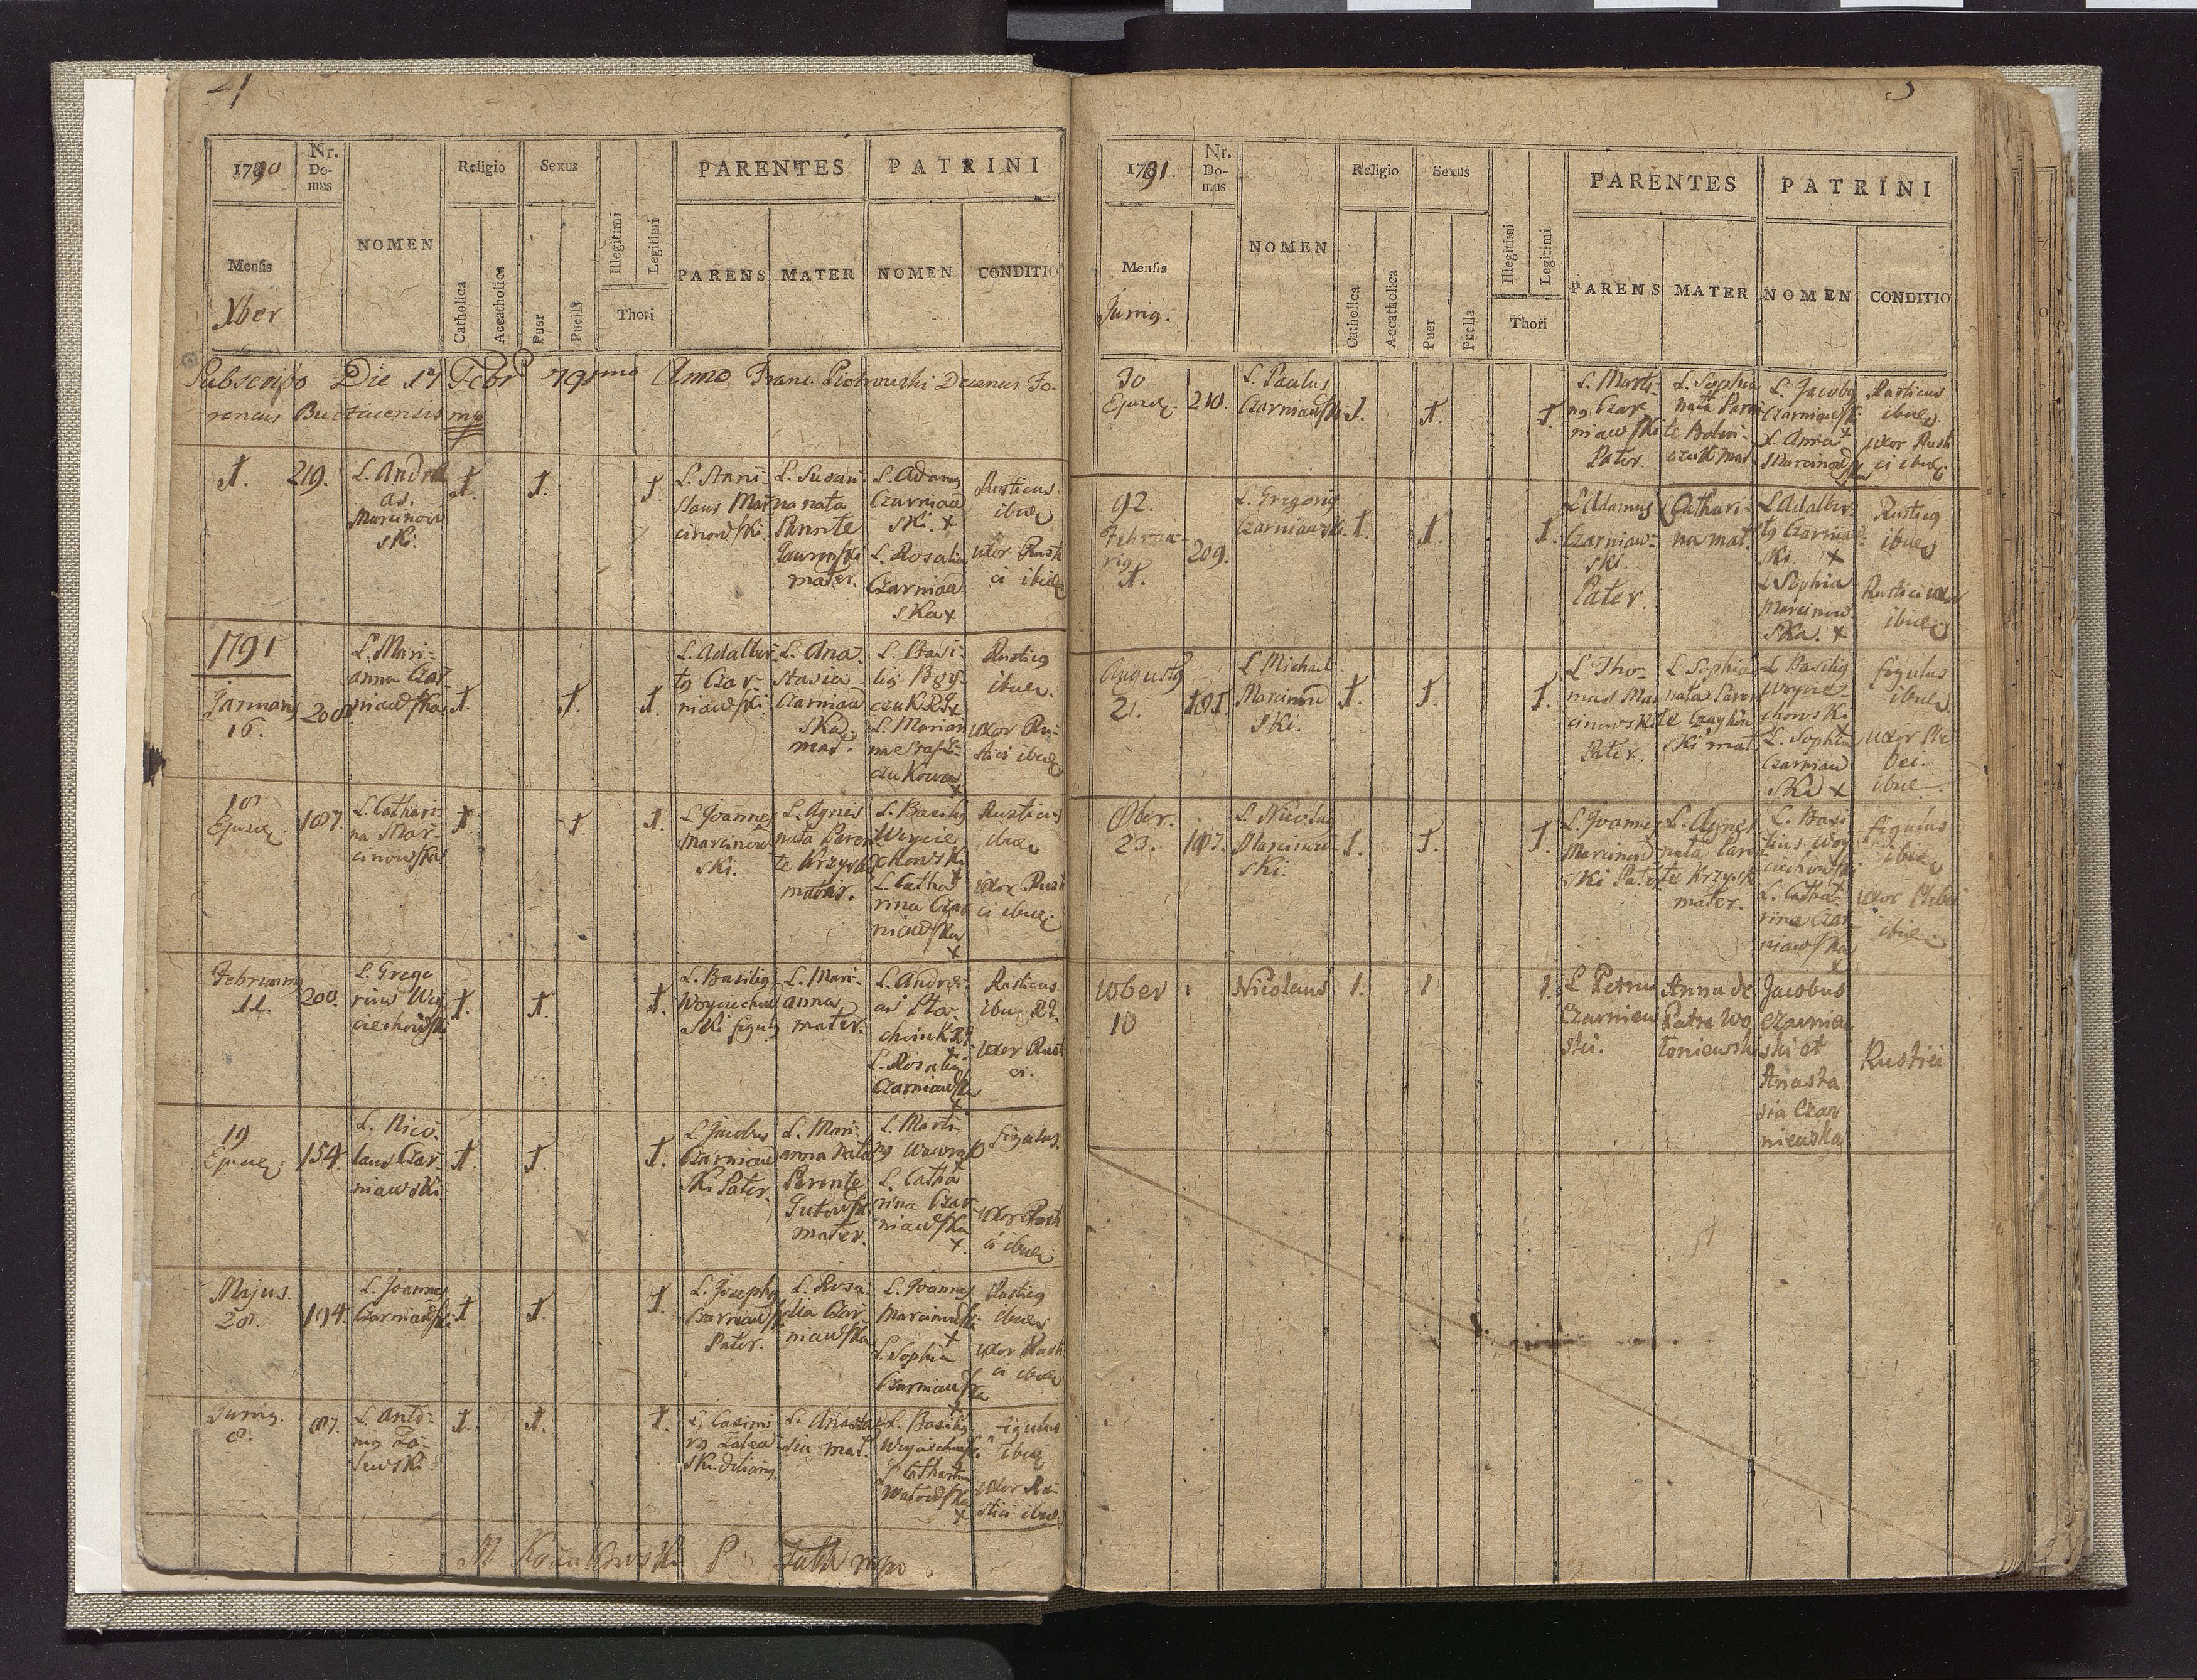 4
1790
Nr. Do-mus
NOMEN
Religio
Sexus
Illegitimi
Legitimi
PARENTES
PATRINI
Mensis
Xber
Catholica
Accatholica
Puer
Puella
Thori
PARENS
MATER
NOMEN
CONDITIO
Subscripo Die 17 Febr 791mo Anno Franc. Piotrowski Decanus Fo-
raneus mp
1.
219.
L. Andre
as.
Marcinow
ski.
1.
1.
1.
L. Stani-
slaus Mar
cinowski.
L. Susan
na nata
Parente
mater.
L. Adamg
Czarniaw
ski. +
L. Rosalia
Czarniaw
ska +
Rusticus
ibid.
uxor Rusti
ci ibid.
1791
Januarig
16.
208
L. Mari-
anna Czar
niawska
1.
1.
1.
L. Adalber
tg Czar-
niawski.
L. Ana
stasia
Czarniaw
ska
mat.
L. Basi-
lig
L. Marian
na
Rusticg
ibid.
uxor Ru-
stici ibid.
18
Ejusd.
187.
L. Cathari
na Mar-
cinowska
1.
1.
1.
L. Joannes
Marcinow
ski.
L. Agnes
nata Paren
te Krzysk
mater.
L. Basilig
Woycie
chowski
L. Catha
rina Czar
niawska
+
Rusticus
ibid.
uxor Rusti
ci ibid.
Februarig
11.
200.
L. Grego
rius Woy
ciechowski
1.
1.
1.
L. Basilig
Woyciechow
ski figulg
L. Mari-
anna
mater.
L. Andre-
as
L. Rosalia
Czarniawska
+
Rusticus
ibid.
uxor Rusti
ci.
19
Ejusd.
154.
L. Nico-
laus Czar-
niawski
1.
1.
1.
L. Jacobus
Czarniaw
ski Pater.
L. Mari-
anna nata
Parente
Gutowsk
mater.
L. Marti
ng
L. Catha
rina Czar
niawska
+
figulus.
uxor Rusti
ci ibid.
Majus.
28.
194.
L. Joannes
Czarniawski
1
1.
1.
L. Josephg
Czarniawski
Pater.
L. Rosa
lia Czar
niawska
L. Joannes
Marcinowski
+
L. Sophia
Czarniawska
Rusticg
ibid.
uxor Rusti
ci ibid.
Junig.
8.
187.
L. Anto-
ng Za-
lewski.
1.
1.
1.
L. Casimi
rg
ski.
L. Anasta
sia mat.
L. Basilig
Woyciechowski.
+
figulus
ibid.
uxor Ru-
stici ibid.
5
1791.
Nr. Do-mus
NOMEN
Religio
Sexus
Illegitimi
Legitimi
PARENTES
PATRINI
Mensis
Junig.
Catholica
Accatholica
Puer
Puella
Thori
PARENS
MATER
NOMEN
CONDITIO
30
Ejusd.
210.
L. Paulus
Czarniawski
1.
1.
1.
L. Marti-
ng Czar
niawski
Pater.
L. Sophia
nata Paren
te
mat
L. Jacobg
Czarniawski
+
L. Anna
Marcinowska
Rusticus
ibid.
uxor Rusti
ci ibid.
92.
Februa-
rig
1.
209.
L. Gregorig
Czarniawski.
1.
1.
1.
L. Adamus
Czarniaw-
ski.
Pater.
Cathari-
na mat.
L. Adalber-
tg Czarniaw-
ski. +
L. Sophia
Marcinow
ska. +
Rusticg
ibid.
Rustici uxor
ibid.
Augustg
21.
181.
L. Michael
Marcinow
ski.
1.
1.
1.
L. Tho-
mas Mar
cinowski
Pater.
L. Sophia
nata Paren
te
ski mat
L. Basilig
Woycie-
chowski
L. Sophia
Czarniaw
ska +
figulus
ibid.
uxor Ple
bei.
ibid.
8ber.
23.
187.
L. Nicolaus
Marcinow-
ski.
1.
1.
1.
L. Joannes
Marcinow
ski Pater
L. Agnes
nata Paren
te Krzysk
mater.
L. Basi
lius Woy
ciechowski
L. Catha-
rina Czar
niawska
+
figulus
ibid.
uxor Plebei
ibid.
10ber
10
Nicolaus
1.
1
1.
L Petrus
Czarniew
ski.
Anna de
Patre Wo
loniewski
Jacobus
Czarniew
ski et
Anasta
sia Czar
niewska
Rustici